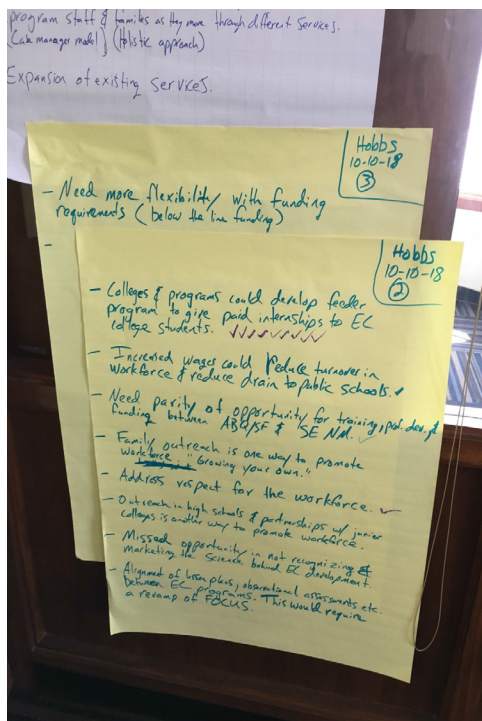 program staff & families as they move through different services.
(case manager model) (Holistic approach)
Expansion of existing services.
Hobbs
10-10-18
3
- Need more flexibility with funding
requirements (below the line funding)
-
Hobbs
10-10-18
2
- Colleges & programs could develop feeder
program to give paid internships to EC
college students. ✓✓✓✓✓✓✓
- Increased wages could reduce turnover in
workforce & reduce drain to public schools. ✓
- Need parity of opportunity for training, prof. dev, &
funding between ABQ/SF & SE NM. ✓
- Family outreach is one way to promote
workforce. "Growing your own."
- Address respect for the workforce. ✓
- Outreach in high schools & partnerships w/ junior
colleges is another way to promote workforce.
- Missed opportunity in not recognizing &
marketing the science behind EC development.
- Alignment of lesson plans, observational assessments etc.
between EC programs. This would require
a revamp of FOCUS.